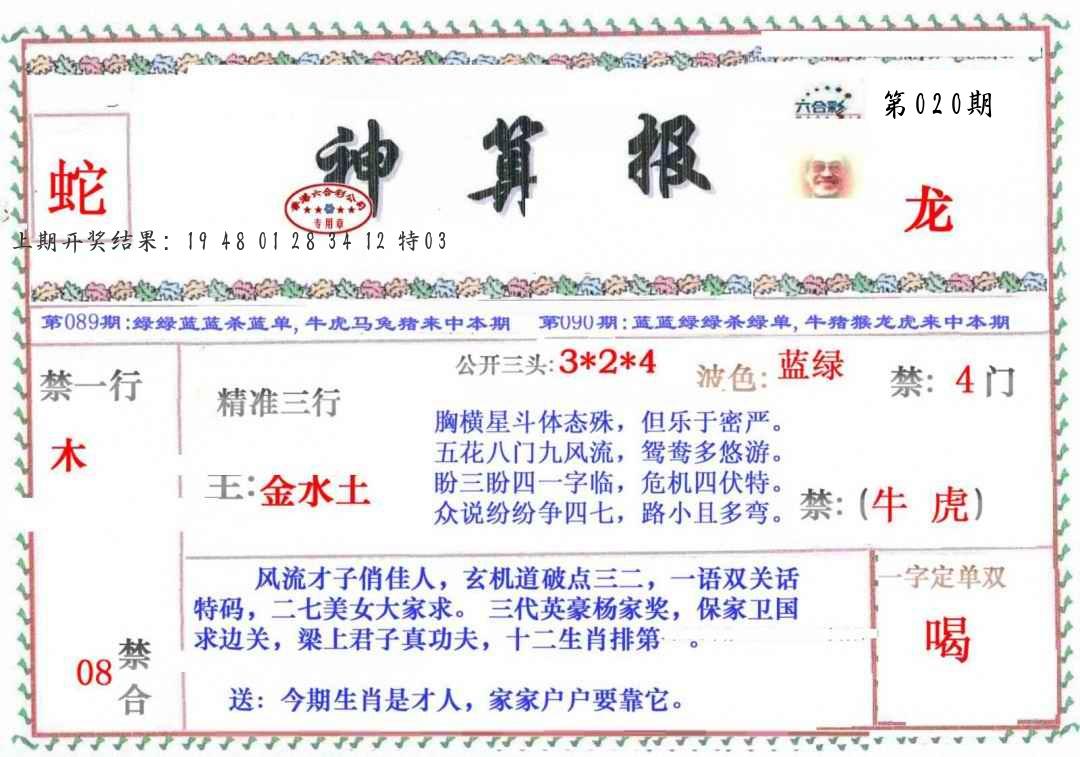 六合彩
第020期
神算报
香港六合彩公司
专用章
蛇
龙
上期开奖结果: 19 48 01 28 34 12 特03
第089期:绿绿蓝蓝杀蓝单,牛虎马兔猪来中本期
第090期:蓝蓝绿绿杀绿单,牛猪猴龙虎来中本期
禁一行
木
精准三行
王:金水土
公开三头:3*2*4
波色:蓝绿
禁: 4门
胸横星斗体态殊，但乐于密严。
五花八门九风流，鸳鸯多悠游。
盼三盼四一字临，危机四伏特。
众说纷纷争四七，路小且多弯。
禁:(牛 虎)
风流才子俏佳人，玄机道破点三二，一语双关话
特码，二七美女大家求。三代英豪杨家奖，保家卫国
求边关，梁上君子真功夫，十二生肖排第 。
送：今期生肖是才人，家家户户要靠它。
一字定单双
喝
08
禁合